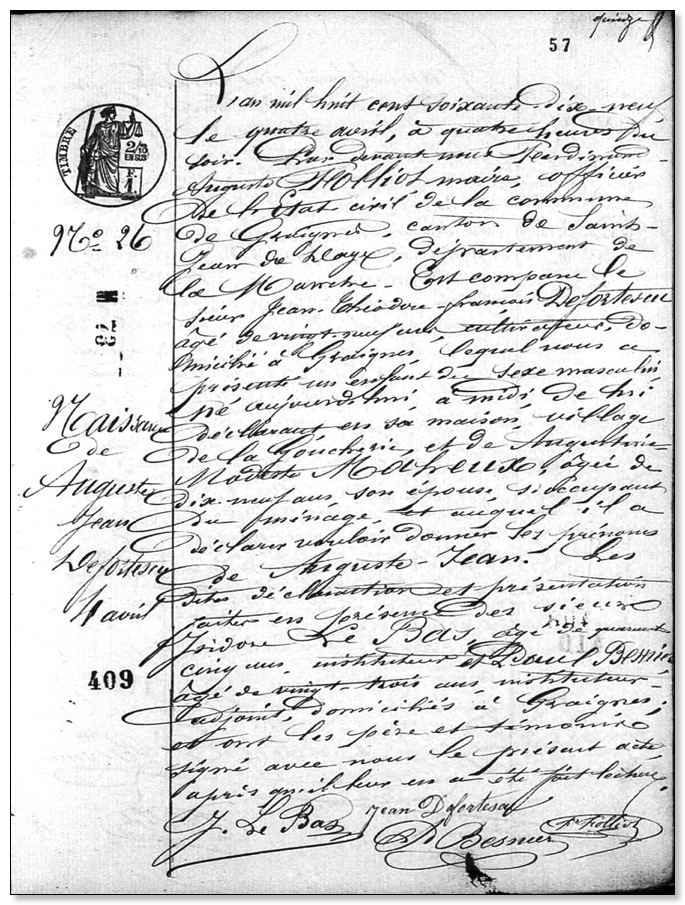 quinze
57
L'an mil huit cent soixante-dix-neuf
le quatre avril, à quatre heures du
soir. Par devant nous Ferdinand-
Auguste Folliot maire, officier
de l'Etat civil de la commune
de Graignes, canton de Saint-
Jean de Daye, département de
la Manche. Est comparu le
sieur Jean-Théodore-françois Defortescu
âgé de vingt-neuf ans, cultivateur, do-
micilié à Graignes, lequel nous a
présenté un enfant du sexe masculin
né aujourd'hui, à midi de lui
déclarant en sa maison, village
de la Goucherie, et de Augustine
Modeste Motreux, âgée de
dix-neuf ans son épouse, s'occupant
du ménage et auquel il a
déclaré vouloir donner les prénoms
de Auguste-Jean. Les
dites déclaration et présentation
faites en présence des sieurs
Isidore Le Bas, âgé de quarante
cinq ans, instituteur et Paul Besnier
âgé de vingt-trois ans, instituteur-
adjoint, domiciliés à Graignes;
et ont les père et témoins
signé avec nous le présent acte
après qu'il leur en a été fait lecture.
J. Le Bas Jean Defortescu
P Besnier Fd Folliot
TIMBRE
2/10
EN SUS
F.
1
Nº 26
Naissance
de
Auguste
Jean
Defortescu
4 avril
409